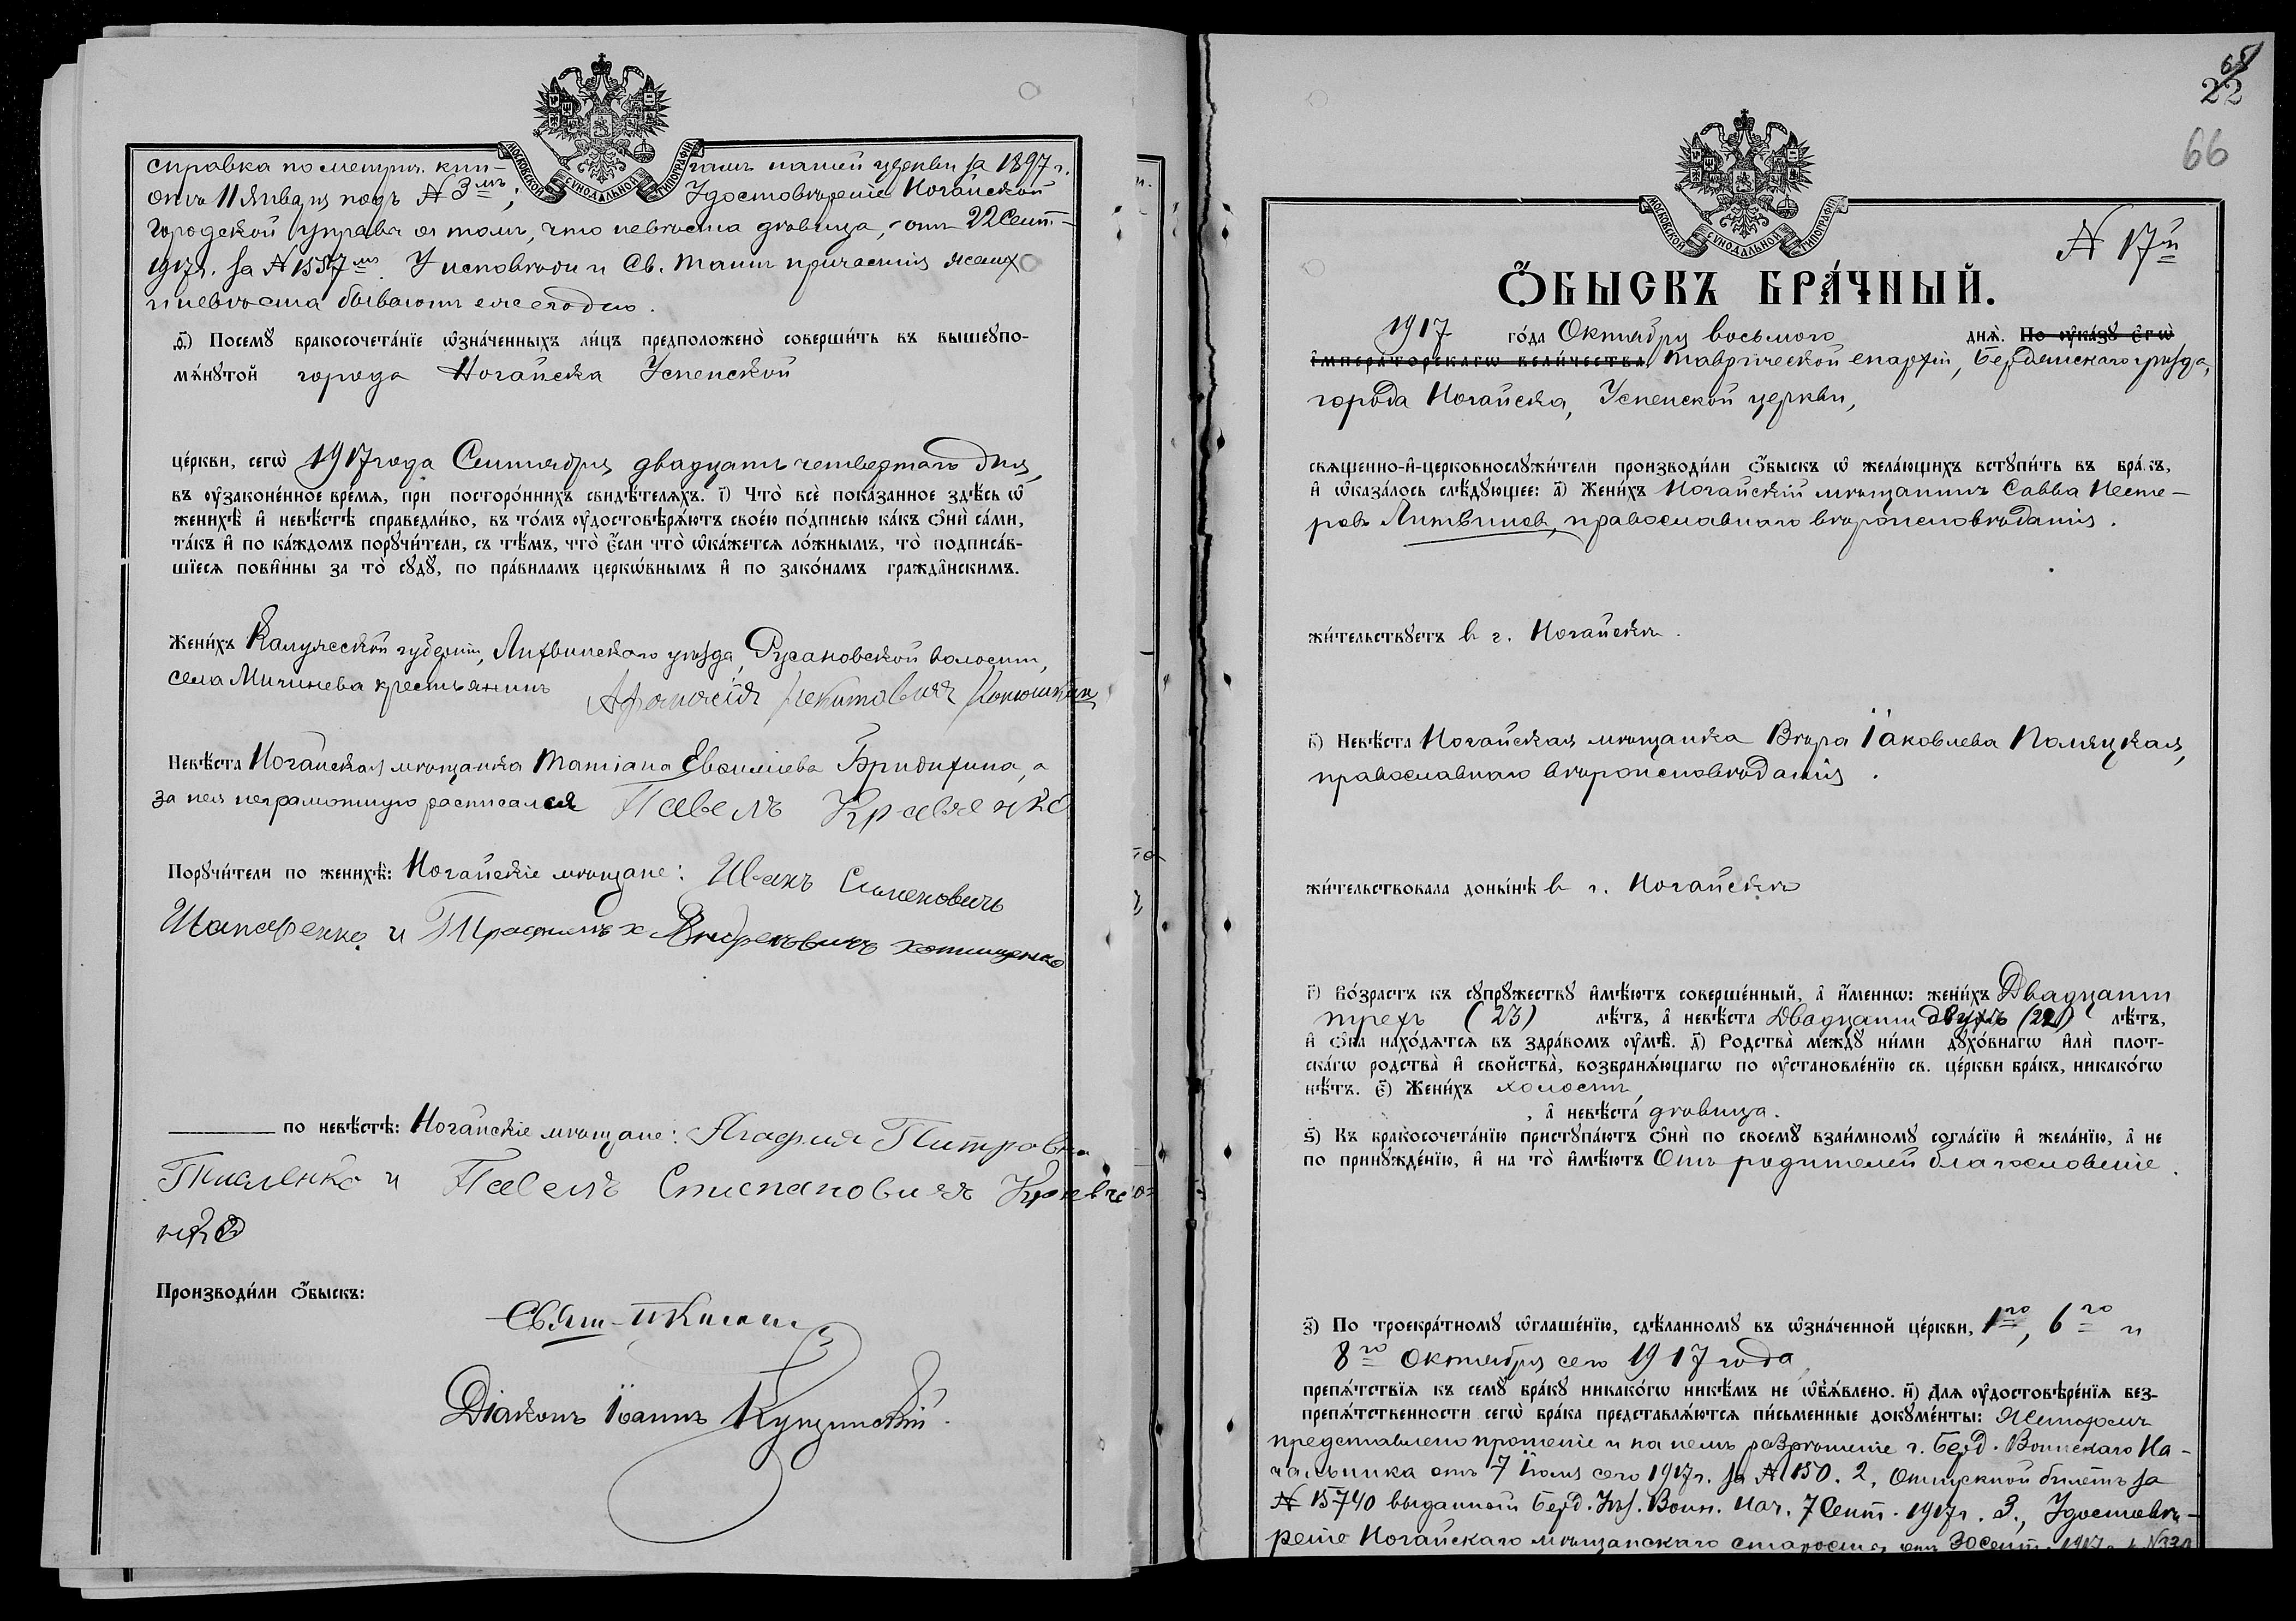 справка по метрич. кни-
гамъ нашей церкви за 1897 г.
отъ 11 Января подъ № 3мъ;
Удостовѣреніе Ногайской
МОСКОВСКОЙ СѴНОДАЛЬНОЙ ТИПОГРАФІИ
городской управы о томъ, что невѣста дѣвица, отъ 22 Сент-
1917 г. за № 1557мъ. У исповѣди и Св. Таинъ причастія женихъ
и невѣста бываютъ ежегодно.
д҃) Посемꙋ̀ бракосочета́нїе ѡ҆зна́ченныхъ ли́цъ предположено̀ соверши́ть въ вышеꙋпо-
мѧ́нꙋтой города Ногайска Успенской
це́ркви, сегѡ̀ 1917 года Сентября двадцать четвертаго дня,
въ ᲂу҆законе́нное вре́мѧ, при посторо́ннихъ свидѣ́телѧхъ. і҃) Что̀ всѐ пока́занное здѣ́сь ѡ҆
женихѣ̀ и҆ невѣ́стѣ справедли́во, въ то́мъ ᲂу҆достовѣрѧ́ютъ свое́ю по́дписью ка́къ ѻ҆нѝ са́ми,
та́къ и҆ по ка́ждомъ порꙋчи́тели, съ тѣ́мъ, что̀ є҆́сли что̀ ѡ҆ка́жетсѧ ло́жнымъ, то̀ подписа́в-
шїесѧ пови́нны за то̀ сꙋдꙋ̀, по пра́виламъ церкѡ́внымъ и҆ по зако́намъ гражда́нскимъ.
Жени́хъ Калужской губерніи, Лихвинскаго уѣзда, Русановской волости,
села Мичинева крестьянинъ
Невѣ́ста Ногайская мѣщанка Татіана Евѳиміева Бридихина, а
за нея неграмотную расписался Павелъ Кравченко
Порꙋчи́тели по женихѣ̀: Ногайскіе мѣщане: Иванъ Семеновичъ
Шапаренко и
по невѣ́стѣ: Ногайскіе мѣщане: Агафия Питровна
и Павелъ Стиспановичъ Кравче
нко
Производи́ли ѻ҆́быскъ:
Свящ.
Діаконъ Іоаннъ
22
66
МОСКОВСКОЙ СѴНОДАЛЬНОЙ ТИПОГРАФІИ
№ 17й
Ѻ҆́БЫСКЪ БРА́ЧНЫЙ.
1917 го́да Октября восьмого днѧ̀. По ᲂу҆ка́зꙋ є҆гѡ̀
и҆мпера́торскагѡ вели́чества Таврической епархіи, Бердянскаго уѣзда,
города Ногайска, Успенской церкви,
свѧще́нно-и҆-церковнослꙋжи́тели производи́ли ѻ҆́быскъ ѡ҆ жела́ющихъ встꙋпи́ть въ бра́къ,
и҆ ѡ҆каза́лось слѣ́дꙋющее: а҃) Жени́хъ Ногайскій мѣщанинъ Савва Несте-
ровъ Литвиновъ, православнаго вѣроисповѣданія.
жи́тельствꙋетъ в г. Ногайскѣ.
в҃) Невѣ́ста Ногайская мѣщанка Вѣра Іаковлева Поляцкая,
православнаго вѣроисповѣданія.
жи́тельствовала доны́нѣ в г. Ногайскѣ
г҃) Во́зрастъ къ сꙋпрꙋ́жествꙋ и҆мѣ́ютъ соверше́нный, а҆ и҆́меннѡ: жени́хъ Двадцати
трехъ (23) лѣ́тъ, а҆ невѣ́ста Двадцати двухъ (22) лѣ́тъ,
и҆ ѻ҆́ба нахо́дѧтсѧ въ здра́вомъ ᲂу҆мѣ̀. д҃) Родства̀ междꙋ̀ ни́ми дꙋхо́внагѡ и҆лѝ плот-
ска́гѡ родства̀ и҆ свойства̀, возбранѧ́ющагѡ по ᲂу҆становле́нїю св. це́ркви бра́къ, никако́гѡ
нѣ́тъ. є҃) Жени́хъ холостъ,
, а҆ невѣ́ста дѣвица.
ѕ҃) Къ бракосочета́нїю пристꙋпа́ютъ ѻ҆нѝ по своемꙋ̀ взаи́мномꙋ согла́сїю и҆ жела́нїю, а҆ не
по принꙋжде́нїю, и҆ на то̀ и҆мѣ́ютъ Отъ родителей благословеніе.
з҃) По троекра́тномꙋ ѡ҆глаше́нїю, сдѣ́ланномꙋ въ ѡ҆зна́ченной це́ркви, 1го, 6го и
8го Октября сего 1917 года
препѧ́тствїѧ къ семꙋ̀ бра́кꙋ никако́гѡ никѣ́мъ не ѡ҆б̾ѧ́влено. и҃) Длѧ ᲂу҆достовѣре́нїѧ без-
препѧ́тственности сегѡ̀ бра́ка представлѧ́ютсѧ пи́сьменные докꙋме́нты: Женихомъ
представлено прошеніе и на немъ разрѣшеніе г. Берд. Воинскаго На-
чальника отъ 7 Іюля сего 1917 г. за № 150. 2, Отпускной билетъ за
№ 15740 выданный Берд. Уѣз. Воин. Нач. 7 Сент. 1917 г. 3., Удостовѣ-
реніе Ногайскаго мѣщанскаго старосты отъ 30 Сент. 1917